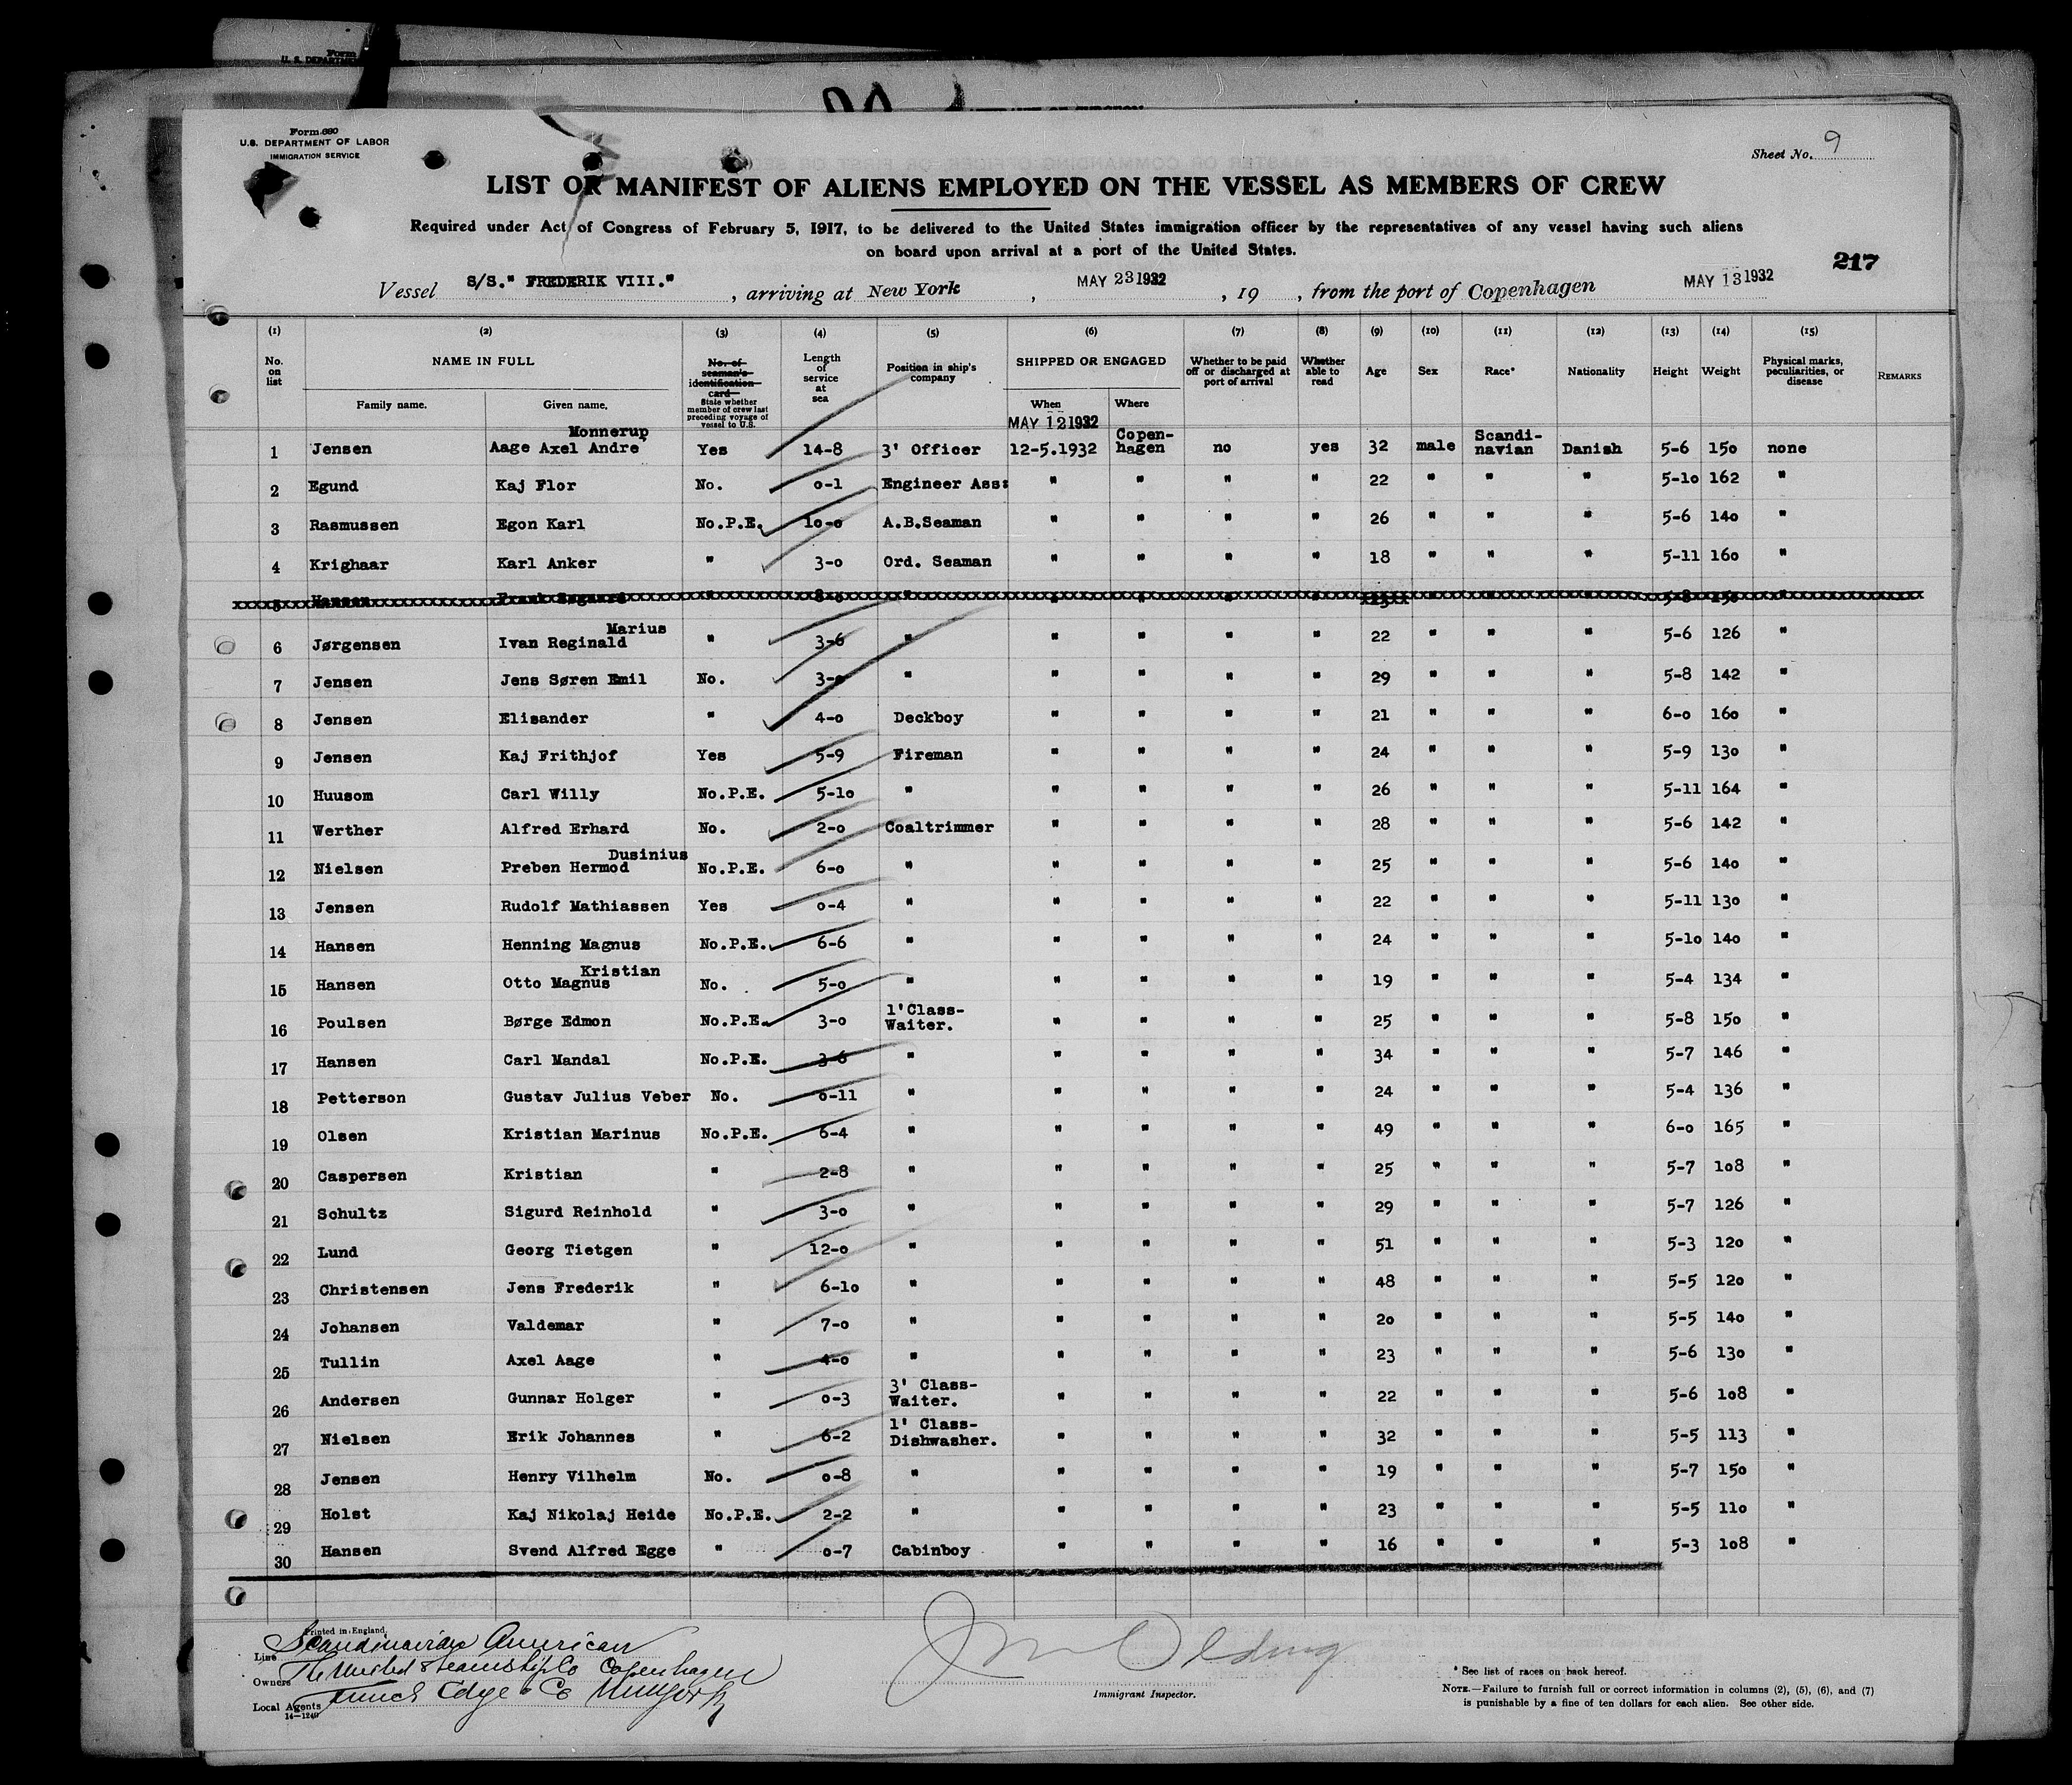 Form 680
U.S. DEPARTMENT OF LABOR
IMMIGRATION SERVICE
Sheet No. 9
LIST OR MANIFEST OF ALIENS EMPLOYED ON THE VESSEL AS MEMBERS OF CREW
Required under Act of Congress of February 5, 1917, to be delivered to the United States immigration officer by the representatives of any vessel having such aliens
on board upon arrival at a port of the United States.
217
Vessel S/S." FREDERIK VIII.", arriving at New York, MAY 23 1932, 19 , from the port of Copenhagen MAY 13 1932
(1) (2) (3) (4) (5) (6) (7) (8) (9) (10) (11) (12) (13) (14) (15)
No. on list NAME IN FULL Family name. Given name. No. of seaman's identification card State whether member of crew last preceding voyage of vessel to U.S. Length of service at sea Position in ship's company SHIPPED OR ENGAGED When Where Whether to be paid off or discharged at port of arrival Whether able to read Age Sex Race* Nationality Height Weight Physical marks, peculiarities, or disease REMARKS
MAY 12 1932
1 Jensen Aage Axel Andre Monnerup Yes 14-8 3' Officer 12-5.1932 Copen-hagen no yes 32 male Scandi-navian Danish 5-6 150 none
2 Egund Kaj Flor No. 0-1 Engineer Ass: " " " " 22 " " " 5-10 162 "
3 Rasmussen Egon Karl No.P.E. 10-0 A.B.Seaman " " " " 26 " " " 5-6 140 "
4 Krighaar Karl Anker " 3-0 Ord. Seaman " " " " 18 " " " 5-11 160 "
5 Hansen Frank
6 Jørgensen Ivan Reginald Marius " 3-6 " " " " " 22 " " " 5-6 126 "
7 Jensen Jens Søren Emil No. 3-0 " " " " " 29 " " " 5-8 142 "
8 Jensen Elisander " 4-0 Deckboy " " " " 21 " " " 6-0 160 "
9 Jensen Kaj Frithjof Yes 5-9 Fireman " " " " 24 " " " 5-9 130 "
10 Huusom Carl Willy No.P.E. 5-10 " " " " " 26 " " " 5-11 164 "
11 Werther Alfred Erhard No. 2-0 Coaltrimmer " " " " 28 " " " 5-6 142 "
12 Nielsen Preben Hermod Dusinius No.P.E. 6-0 " " " " " 25 " " " 5-6 140 "
13 Jensen Rudolf Mathiassen Yes 0-4 " " " " " 22 " " " 5-11 130 "
14 Hansen Henning Magnus No.P.E. 6-6 " " " " " 24 " " " 5-10 140 "
15 Hansen Otto Magnus Kristian No. 5-0 " " " " " 19 " " " 5-4 134 "
16 Poulsen Børge Edmon No.P.E. 3-0 1'Class-Waiter. " " " " 25 " " " 5-8 150 "
17 Hansen Carl Mandal No.P.E. 3-6 " " " " " 34 " " " 5-7 146 "
18 Petterson Gustav Julius Veber No. 0-11 " " " " " 24 " " " 5-4 136 "
19 Olsen Kristian Marinus No.P.E. 6-4 " " " " " 49 " " " 6-0 165 "
20 Caspersen Kristian " 2-8 " " " " " 25 " " " 5-7 108 "
21 Schultz Sigurd Reinhold " 3-0 " " " " " 29 " " " 5-7 126 "
22 Lund Georg Tietgen " 12-0 " " " " " 51 " " " 5-3 120 "
23 Christensen Jens Frederik " 6-10 " " " " " 48 " " " 5-5 120 "
24 Johansen Valdemar " 7-0 " " " " " 20 " " " 5-5 140 "
25 Tullin Axel Aage " 4-0 " " " " " 23 " " " 5-6 130 "
26 Andersen Gunnar Holger " 0-3 3' Class-Waiter. " " " " 22 " " " 5-6 108 "
27 Nielsen Erik Johannes " 6-2 1' Class-Dishwasher. " " " " 32 " " " 5-5 113 "
28 Jensen Henry Vilhelm No. 0-8 " " " " " 19 " " " 5-7 150 "
29 Holst Kaj Nikolaj Heide No.P.E. 2-2 " " " " " 23 " " " 5-5 110 "
30 Hansen Svend Alfred Egge " 0-7 Cabinboy " " " " 16 " " " 5-3 108 "
Printed in England.
Line Scandinavian American
Owners The United Steamship Co Copenhagen
Local Agents Funch Edye & Co New York
14-1240
Immigrant Inspector.
* See list of races on back hereof.
NOTE.—Failure to furnish full or correct information in columns (2), (5), (6), and (7)
is punishable by a fine of ten dollars for each alien. See other side.